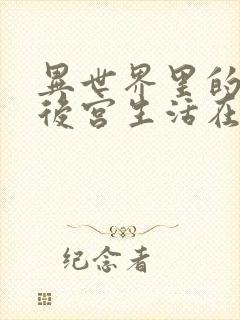 異世界里的
後宮生活在
纪念者